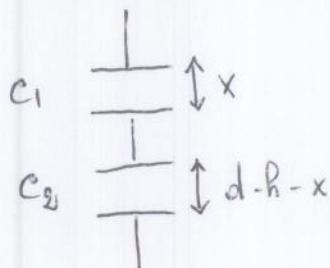 C₁
x
C₂
d-h-x